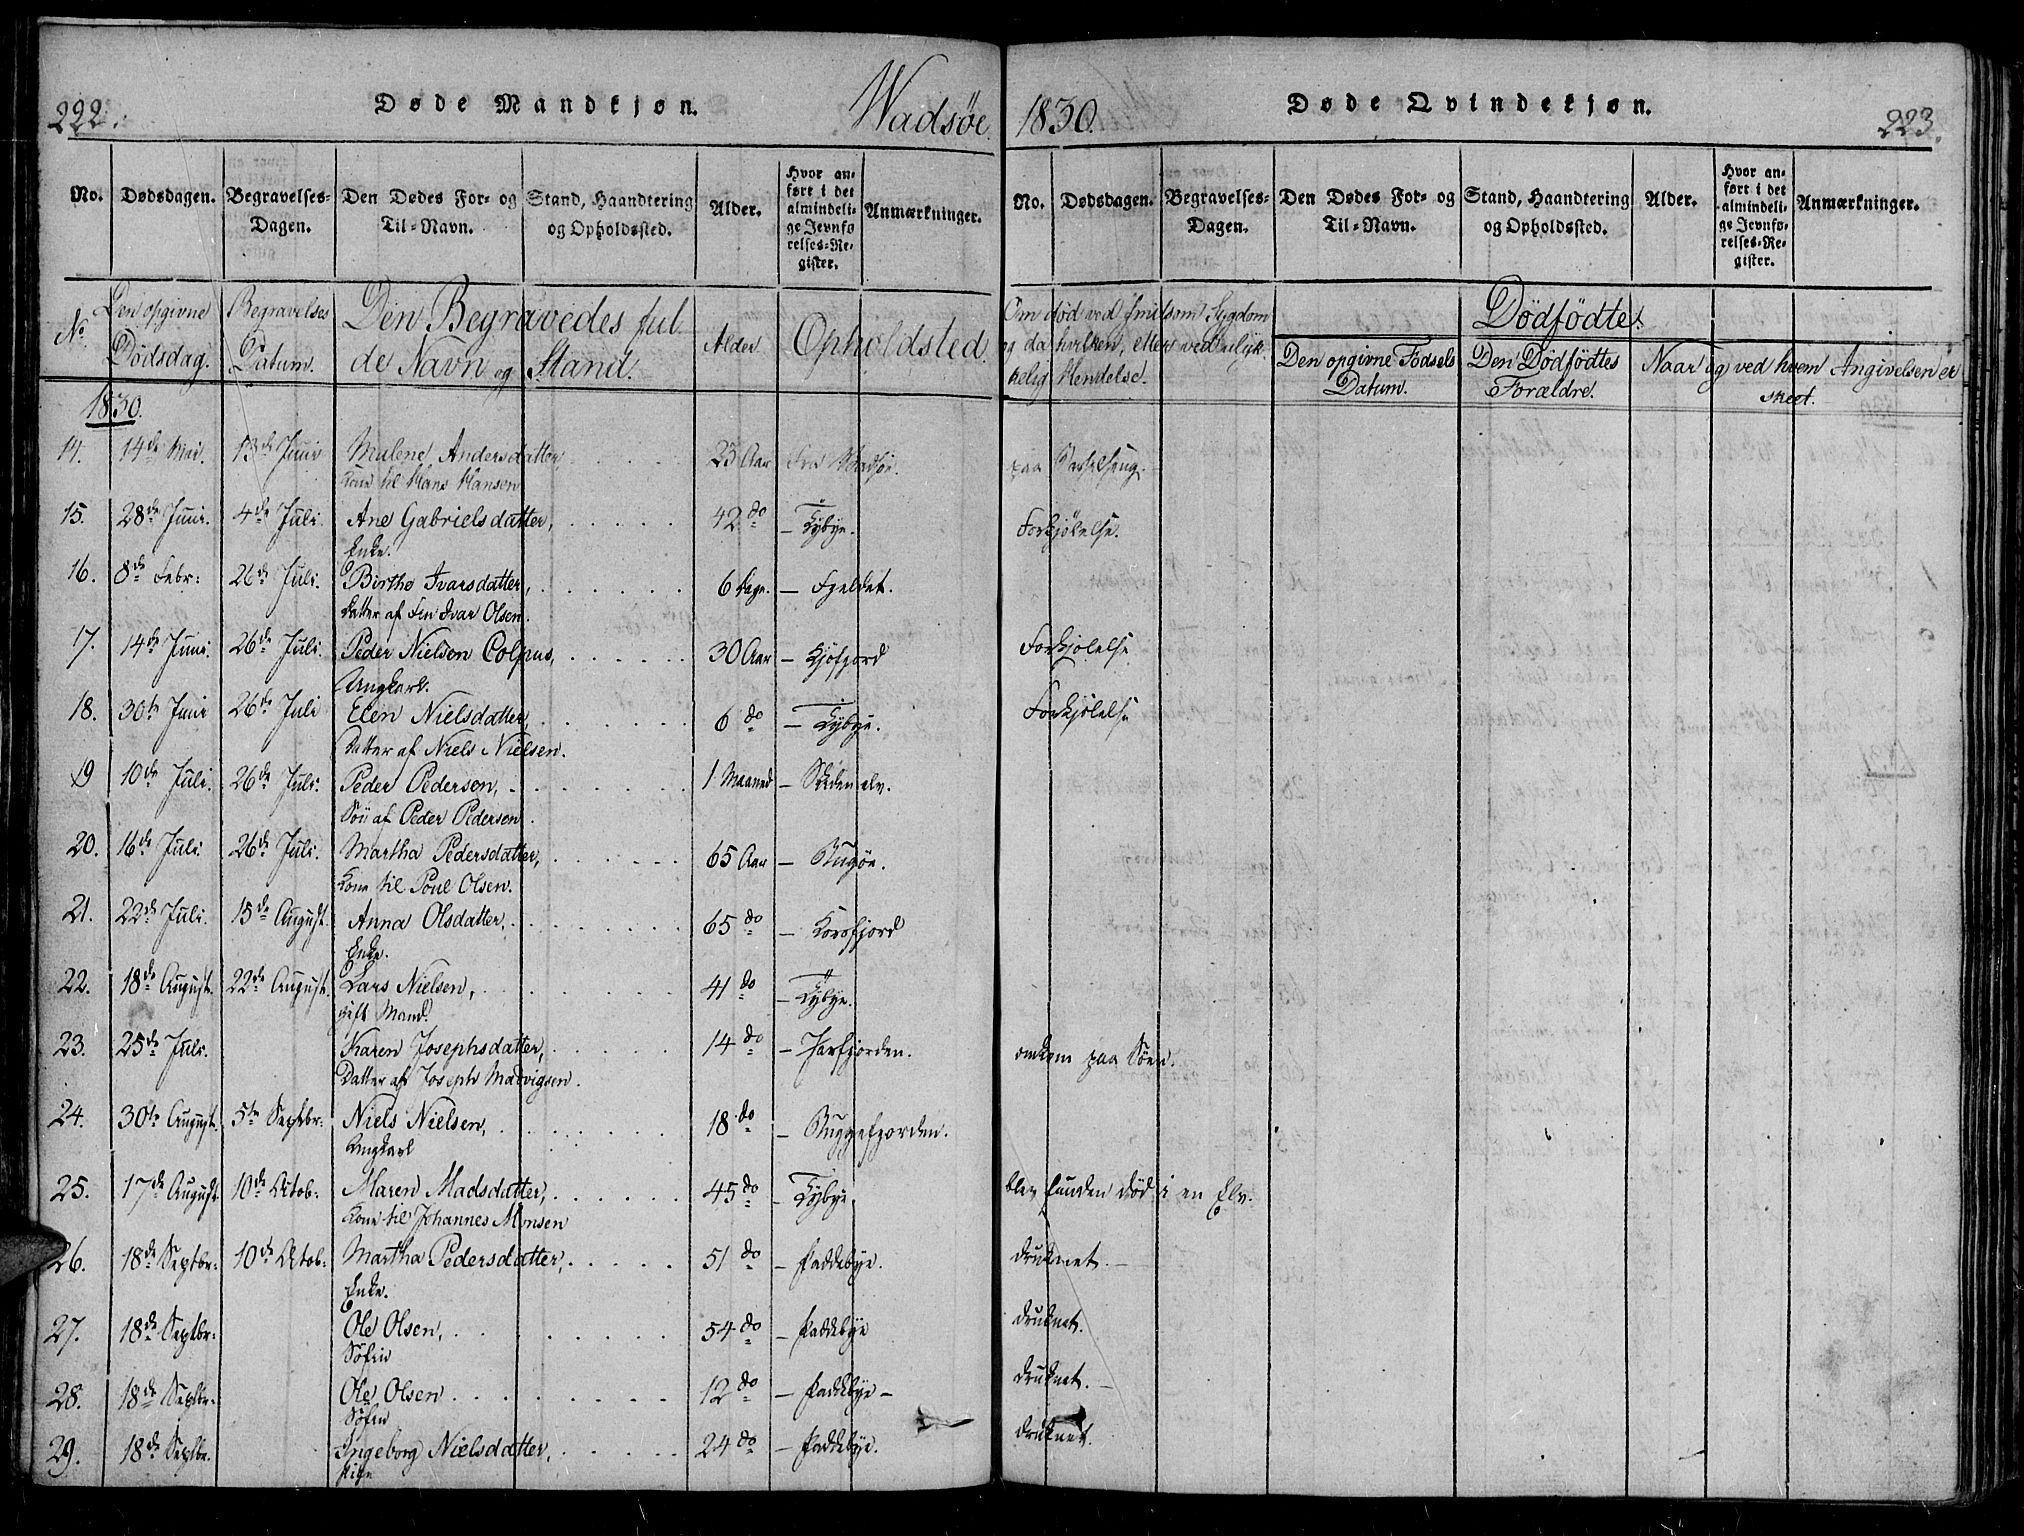 222.
Døde Mandkjøn.
Wadsøe
No.
Dødsdagen.
Begravelses-Dagen.
Den Dødes For- og Til-Navn.
Stand, Haandtering og Opholdssted.
Alder.
Hvor anført i det almindelige Jevnførelses-Register.
Anmærkninger.
No. Den opgivne Dødsdag.
Begravelses Datum.
Den Begravedes fulde Navn og Stand.
Alder
Opholdsted.
1830.
14. 14de Mai. 13de Juni Malene Andersdatter 23 Aar Wadsøe.
Kone til Hans Hansen
15. 28de Juni. 4de Juli. Ane Gabrielsdatter, 42 do – Kybye.
Enke.
16. 8de Febr: 26de Juli. Birthe Ivarsdatter, 6 Dage. – Fjeldet.
Datter af Fin Ivar Olsen.
17. 14de Juni. 26de Juli. Peder Nielsen Colpus, 30 Aar – Kjøfjord
Ungkarl.
18. 30te Juni 26de Juli Elen Nielsdatter, 6 do – Kybye.
Datter af Niels Nielsen.
19 10de Juli. 26de Juli. Peder Pedersen, 1 Maaned – Skidenelv.
Søn af Peder Pedersen.
20. 16de Juli. 26de Juli. Martha Pedersdatter, 65 Aar – Bugøe.
Kone til Poul Olsen.
21. 22de Juli. 15de August. Anna Olsdatter, 65 do – Korsfjord
Enke.
22. 18de August. 22de August. Lars Nielsen, 41 do – Kybye.
gift Mand.
23. 25de Juli. Karen Josephsdatter, 14 do – Jarfjorden.
Datter af Joseph Madvigsen.
24. 30te August. 5te Septbr: Niels Nielsen, 18 do – Buggefjorden.
Ungkarl
25. 17de August 10de Octob: Maren Madsdatter, 45 do – Kybye.
Kone til Johannes Monsen
26. 18de Septbr: 10de Octob: Martha Pedersdatter, 51 do – Paddebye.
Enke.
27. 18de Septbr: Ole Olsen, 54 do – Paddebye
Søfin
28. 18de Septbr: Ole Olsen 12 do – Paddebye –
Søfin
29. 18de Septbr. Ingeborg Nielsdatter, 24 do – Paddebye.
Pige
1830.
Døde Qvindekjøn.
223.
No.
Dødsdagen.
Begravelses-Dagen.
Den Dødes For- og Til-Navn.
Stand, Haandtering og Opholdssted.
Alder.
Hvor anført i det almindelige Jevnførelses-Register.
Anmærkninger.
Om død ved smitsom Sygdom
og da hvilken, eller ved ulyk-
kelig Hendelse.
Dødfødte.
Den opgivne Fødsels Datum.
Den Dødfødtes Forældre.
Naar og ved hvem Angivelsen er skeet.
paa Barselseng.
Forkjølelse.
Forkjølelse
Forkjølelse
omkom paa Søen.
blev funden død i en Elv.
druknet. –
druknet.
druknet. –
druknet.